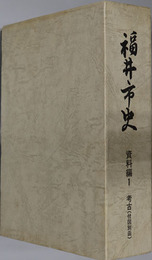 福井市史
資料編1
考古(付図別函)